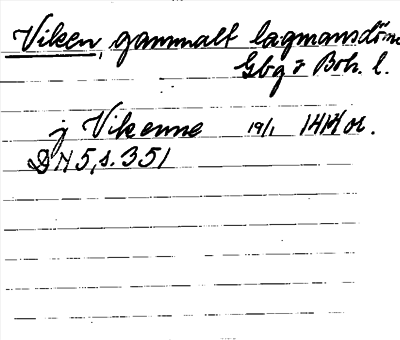 Viken, gammalt lagmansdöme
Gbg o Boh. l.
j Vikenne 19/1 1414 or.
DN 5, s. 351